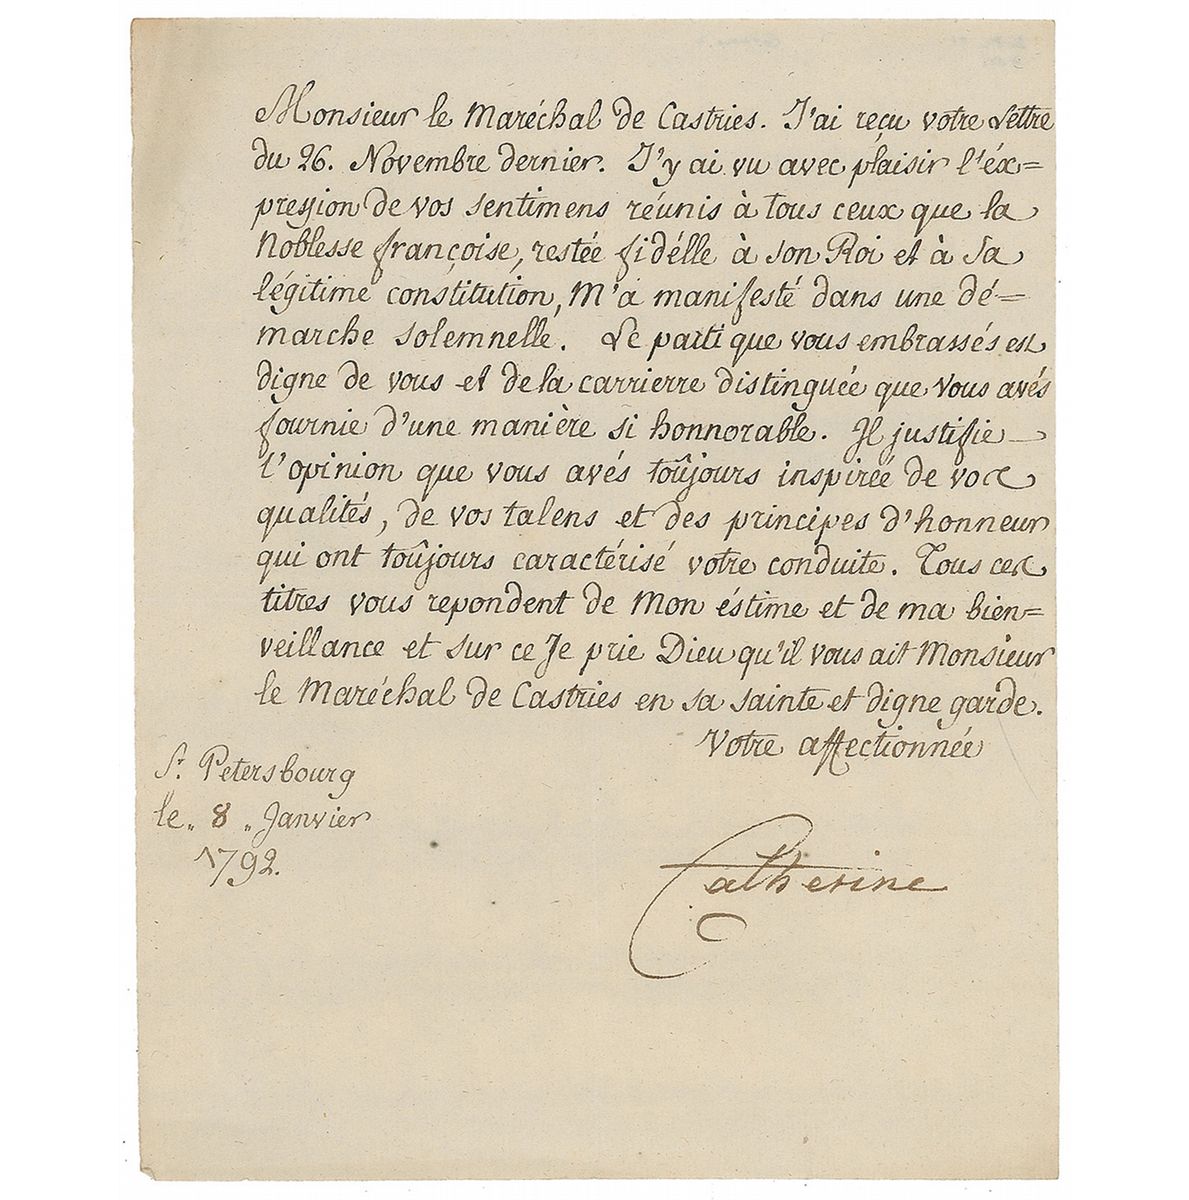 Monsieur le Maréchal de Castries. J'ai reçu votre Lettre
du 26. Novembre dernier. J'y ai vu avec plaisir l'éx=
pression de vos sentimens réunis à tous ceux que la
Noblesse françoise, restée fidélle à son Roi et à Sa
légitime constitution, M'a manifesté dans une dé=
marche solemnelle. Le parti que vous embrassés est
digne de vous et de la carrierre distinguée que vous avés
fournie d'une manière si honnorable. Il justifie
l'opinion que vous avés toûjours inspirée de vos
qualités, de vos talens et des principes d'honneur
qui ont toûjours caractérisé votre conduite. Tous ces
titres vous repondent de Mon éstime et de ma bien=
veillance et sur ce Je prie Dieu qu'il vous ait Monsieur
le Maréchal de Castries en sa sainte et digne garde.
Votre affectionnée
St. Petersbourg
le „ 8 „ Janvier
1792.
Catherine